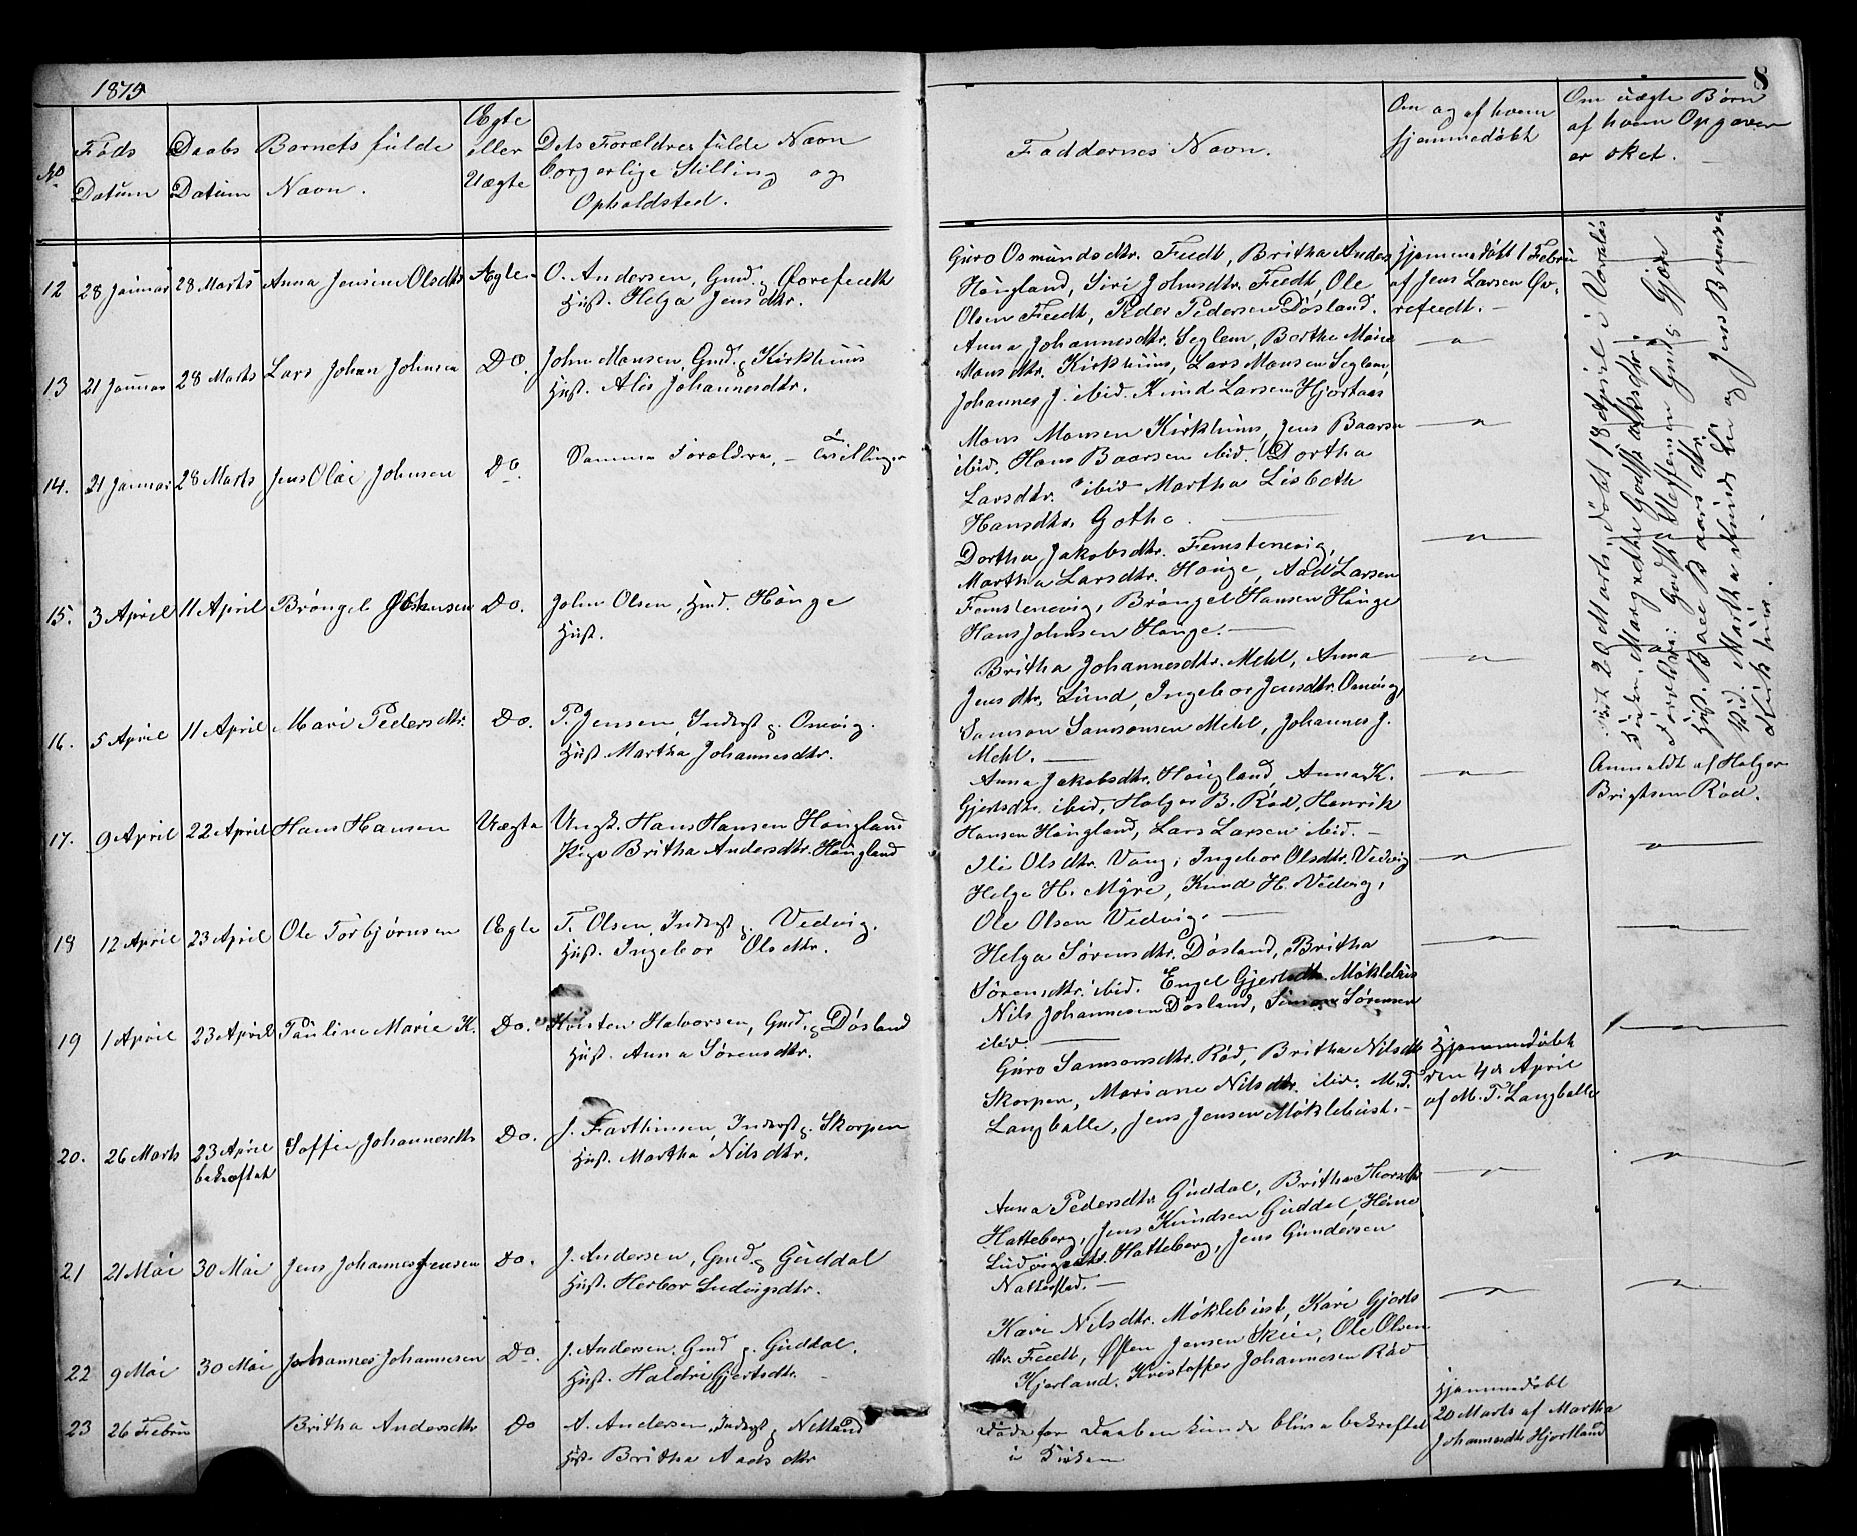 1875
8
No
Føds Datum
Daabs Datum
Barnets fulde Navn.
Ægte eller Uægte
Dets Forældres fulde Navn
borgerlige Stilling og
Opholdsted.
Faddernes Navn.
Om og af hvem
hjemmedøbt
Om uægte Børn
af hvem Opgaven
er sket.
12 28 Januar 28 Marts Anna Jensine Olsdtr Ægte O. Andersen, Gmd. g. Øvrefeedt
Hust. Helga Jensdtr.
Guro Osmundsdtr. Feedt, Britha Anders
Haugland, Siri Johnsdtr. Feedt, Ole
Olsen Feedt, Peder Pedersen Døsland.
Hjemmedøbt 1 Febru
af Jens Larsen Øv-
refeedt. -
13 21 Januar 28 Marts Lars Johan Johnsen Do. John Monsen, Gmd. g. Kirkhuus
Hust. Alis Johannesdtr.
Anna Johannesdtr. Seglem, Berthe Marie
Monsdtr. Kirkhuus, Lars Monsen Seglem,
Johannes J. ibid. Knud Larsen Hjortaas
14. 21 Januar 28 Marts Jens Olai Johnsen Do. Samme Forældre, - Tvillinger
Mons Monsen Kirkhuus, Jens Baarse
ibid. Hans Baarsen ibid. Dortha
Larsdtr. ibid Martha Lisbeth
Hansdtr. Gotha.
15. 3 April 11 April Brøngel Johnsen Do. John Olsen, Hmd. Hauge
Hust.
Dortha Jakobsdtr. Femstenevig,
Martha Larsdtr. Hauge, Aad Larsen
Femstenevig, Brøngel Hansen Hauge
Hans Johnsen Hauge. -
16. 5 April 11 April Mari Pedersdtr. Do. P. Jensen, Inderst g. Omvig.
Hust Martha Johannesdtr.
Britha Johannesdtr. Mehl, Anna
Jensdtr. Lund, Ingebor Jensdtr. Omvig,
Samson Samsonsen Mehl, Johannes J.
Mehl. -
17. 9 April 22 April Hans Hansen Uægte Ungk. Hans Hansen Haugland
Pige Britha Andersdtr. Haugland
Anna Jakobsdtr. Haugland, Anna K.
Gjertsdtr. ibid, Holger B. Rød, Henrik
Hansen Haugland, Lars Larsen ibid. -
Anmeldt af Holger
Brigtsen Rød.
18 12 April 23 April Ole Torbjørnsen Ægte T. Olsen, Inderst g. Vedvig.
Hust. Ingebor Olsdtr.
Ili Olsdtr. Vang, Ingebor Olsdtr. Vedvig
Helge H. Myre, Knud H. Vedvig,
Ole Olsen Vedvig. -
19 1 April 23 April Pauline Marie K. Do. Kristen Halvorsen, Gmd. g. Døsland
Hust. Anna Sørensdtr.
Helga Sørensdtr. Døsland, Britha
Sørensdtr. ibid. Engel Gjertsdtr. Møklebus
Nils Johannesen Døsland, Simon Sørensen
ibid. -
20. 26 Marts 23 April
bekræftet
Soffie Johannesdtr Do. J. Farthinsen, Inderst g. Skorpen
Hust. Martha Nilsdtr.
Guro Samsonsdtr. Rød, Britha Nilsdtr
Skorpen, Mariane Nilsdtr. ibid. M. T.
Langballe, Jens Jensen Møklebust. -
Hjemmedøbt
den 4de April
af M. T. Langballe
21 21 Mai 30 Mai Jens Johannes Jensen Do. J. Andersen, Gmd. g. Guddal
Hust. Herbor Ludvigsdtr.
Anna Pedersdtr. Guddal, Britha Thorsdtr
Hatteberg, Jens Knudsen Guddal,
Ludvigsdtr. Hatteberg, Jens Gundersen
Nattestad. -
22 9 Mai 30 Mai Johannes Johannesen Do. J. Andersen, Gmd g. Guddal.
Hust. Haldri Gjertsdtr. -
Kari Nilsdtr. Møklebust, Kari Gjerts
dtr. Feedt, Østen Jensen Skeie, Ole Olsen
Kjerland, Kristoffer Johannesen Rød
23 26 Febru Britha Andersdtr Do A. Andersen, Inderst g. Netland
Hust. Britha Aadsdtr
Døde før Daaben kunde blive bekræftet
i Kirken
Hjemmedøbt
20 Marts af Martha
Johannesdtr Hjortland
født 29 Marts, døbt 18 April i Varaldsø
Margrethe Godtskalksdtr.
Forældre: Godtsk. Steffensen Gmd. g. Gjøen
Hust. Baarsdtr.
Fad. Martha og Jens Baarsen